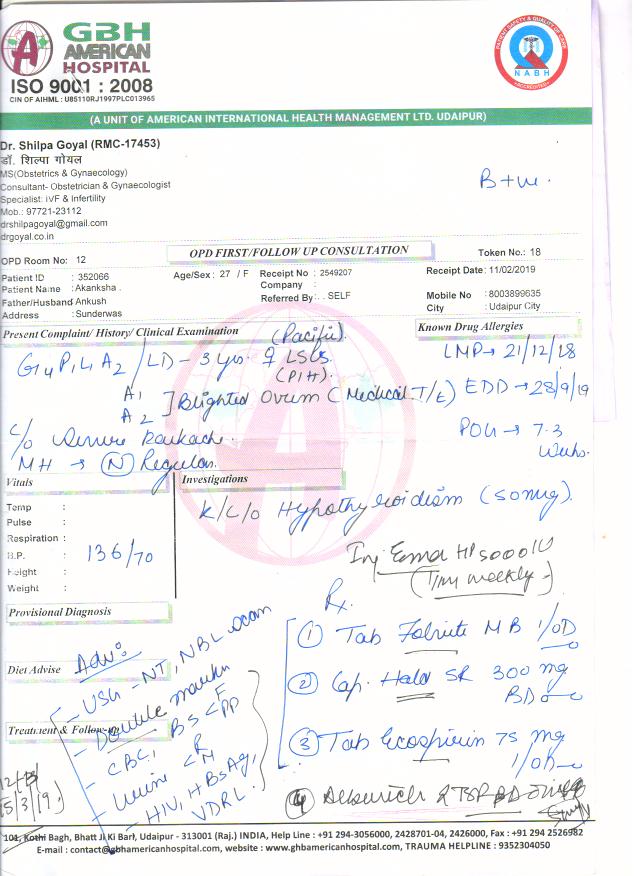 GBH
AMERICAN
HOSPITAL
ISO 9001 : 2008
CIN OF AIHML : U85110RJ1997PLC013965
PATIENT SAFETY & QUALITY OF CARE
NABH
ACCREDITED
(A UNIT OF AMERICAN INTERNATIONAL HEALTH MANAGEMENT LTD. UDAIPUR)
Dr. Shilpa Goyal (RMC-17453)
डॉ. शिल्पा गोयल
MS(Obstetrics & Gynaecology)
Consultant- Obstetrician & Gynaecologist
Specialist: IVF & Infertility
Mob.: 97721-23112
drshilpagoyal@gmail.com
drgoyal.co.in
B+ve.
OPD Room No: 12
OPD FIRST/FOLLOW UP CONSULTATION
Token No.: 18
Patient ID : 352066
Age/Sex : 27 / F
Receipt No : 2549207
Receipt Date: 11/02/2019
Patient Name : Akanksha .
Company :
Father/Husband Ankush
Referred By : . SELF
Mobile No : 8003899635
Address : Sunderwas
City : Udaipur City
Present Complaint/ History/ Clinical Examination
Known Drug Allergies
(Pacific).
G4 P1 L1 A2 / LD - 3 yrs. LSCS
(PIH).
LMP → 21/12/18
A1
A2 ] Blighted Ovum (Medical T/t)
EDD → 28/9/19
POG → 7.3
Weeks.
c/o Severe
MH → (N) Regular.
Vitals
Investigations
K/C/O Hypothyroidism (50mg).
Temp :
Pulse :
Respiration :
B.P. : 136/70
Height :
Weight :
Inj HP 5000 IU
weekly
Provisional Diagnosis
Rx.
Diet Advise
Treatment & Follow-up
Adv:
- USG - NT, NBL scan
- Double marker
- CBC, BS < F PP
- Urine < R M
- HIV, HBsAg,
VDRL.
15/3/19.)
① Tab Folrite MB 1/OD
② Cap. Hald SR 300 mg
BD
③ Tab Ecosprin 75 mg
1/OD
④ 2 TSP BD
101, Kothi Bagh, Bhatt Ji Ki Bari, Udaipur - 313001 (Raj.) INDIA, Help Line : +91 294-3056000, 2428701-04, 2426000, Fax : +91 294 2526982
E-mail : contact@gbhamericanhospital.com, website : www.gbhamericanhospital.com, TRAUMA HELPLINE : 9352304050